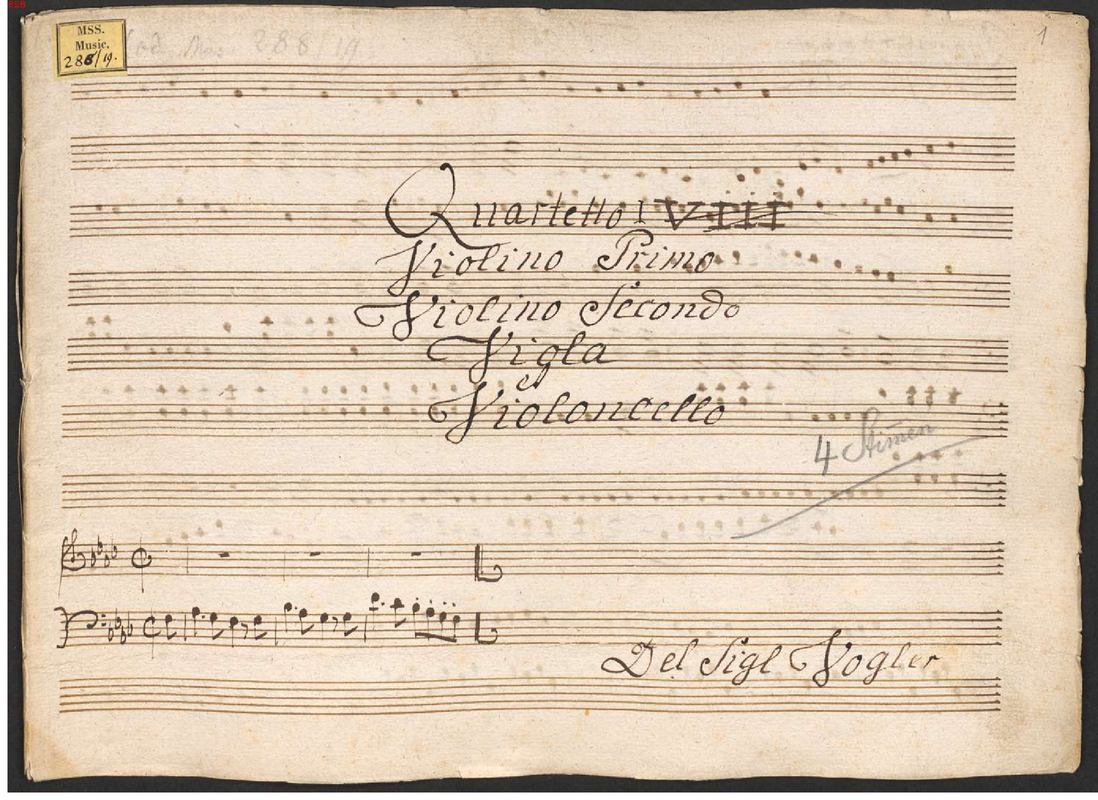 BSB
MSS.
Music.
288/19.
Cod. Mus. 288/19
1
Quartetto I VIII
Violino Primo
Violino Secondo
Viola
et
Violoncello
4 Stim̄en
Del Sigl Vogler